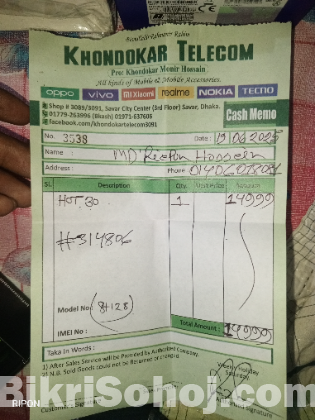 Bismillahir Rahmanir Rahim
KHONDOKAR TELECOM
Pro: Khondokar Monir Hossain
All Kinds of Mobile & Mobile Accessories.
oppo vivo Mi Xiaomi realme NOKIA TECNO
Shop # 3089/3091, Savar City Center (3rd Floor) Savar, Dhaka.
01779-263996 (Bkash) 01971-637606
facebook.com/khondokartelecom3091
Cash Memo
No. 3538
Date : 19 06 2025
Name : MD Ripon Hossain
Address :
Phone
SL Description Qty Unit Price
HOT 30 1 14999
#31480
Model No (8+128)
IMEI No :
Total Amount : 14999
Taka In Words :
1) After Sales Service will be Provided by Authorized Company
2) N.B. Sold Goods could not be Returned or changed
Weekly Holiday
BikriSohoj.com
RIPON